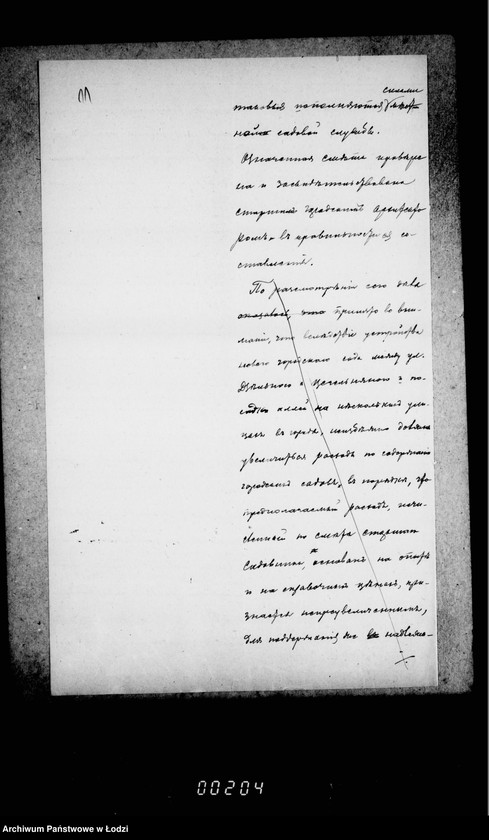 силами
таковыя исполняются
садовой службы.
Означенная смѣта провѣре
на и засвидѣтельствована
старшимъ городскимъ Архитекто
ромъ въ правильности со
ставленія.
По разсмотрѣніи сего
принято во вни
маніе, что вслѣдствіе устройства
новаго городского сада между ул.
и Цегельняною и по
садки аллей на нѣсколькихъ ули
цахъ въ городѣ, неизбѣжно должны
увеличиться расходы по содержанію
городскихъ садовъ,
предполагаемый расходъ, исчи
сленный по смѣтѣ старшаго
Садовника, основанъ на опытѣ
и на справочныхъ цѣнахъ, при
знается непреувеличеннымъ,
для поддержанія же въ надлежа-
00204
Archiwum Państwowe w Łodzi